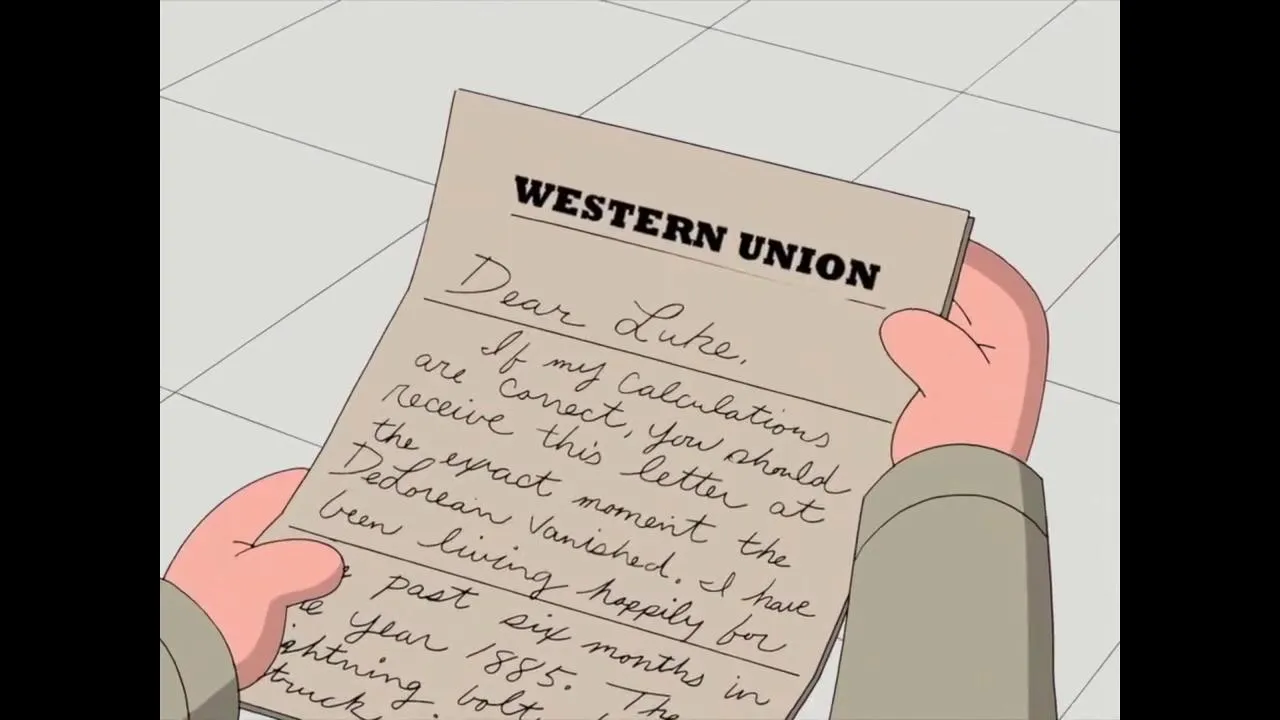 WESTERN UNION
Dear Luke,
If my calculations
are correct, you should
receive this letter at
the exact moment the
DeLorean vanished. I have
been living happily for
past six months in
year 1885. The
bolt